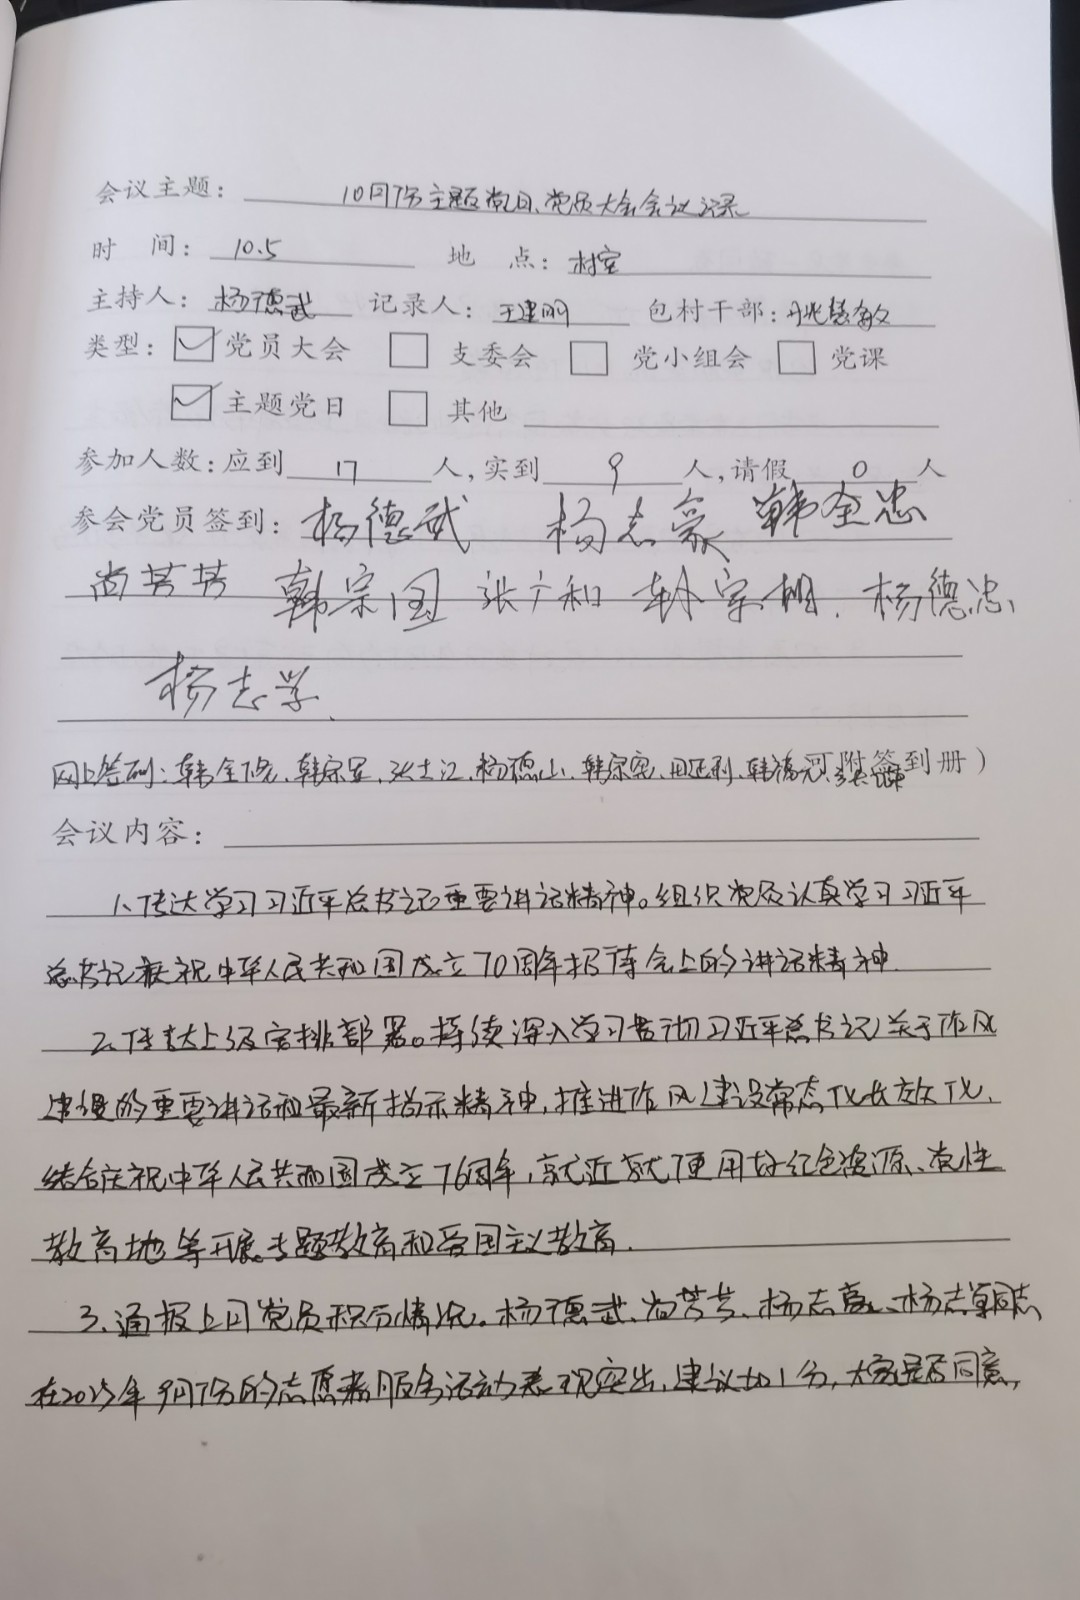 会议主题：10月份主题党日、党员大会会议记录
时 间：10.5 地 点：村室
主持人：杨德武 记录人：王建明 包村干部：姚慧敏
类型：☑党员大会 □支委会 □党小组会 □党课
☑主题党日 □其他
参加人数：应到17人，实到9人，请假0人
参会党员签到：杨德武 杨志豪 韩全忠
尚芳芳 韩宗国 张广和 韩宗相. 杨德忠、
杨志学.
网上签到：韩全 、韩宗军、张士江、杨德山、韩宗宪、田还利、韩福河 可附签到册）
会议内容：
1、传达学习习近平总书记重要讲话精神。组织党员认真学习习近平
总书记庆祝中华人民共和国成立70周年招待会上的讲话精神.
2、传达上级安排部署。持续深入学习贯彻习近平总书记关于作风
建设的重要讲话和最新指示精神，推进作风建设常态化长效化，
结合庆祝中华人民共和国成立76周年，就近就便用好红色资源、党性
教育地等开展专题教育和爱国主义教育.
3、通报上月党员积分情况。杨德武、尚芳芳、杨志豪、杨志学同志
在2025年9月份的志愿者服务活动表现突出，建议加1分，大家是否同意，